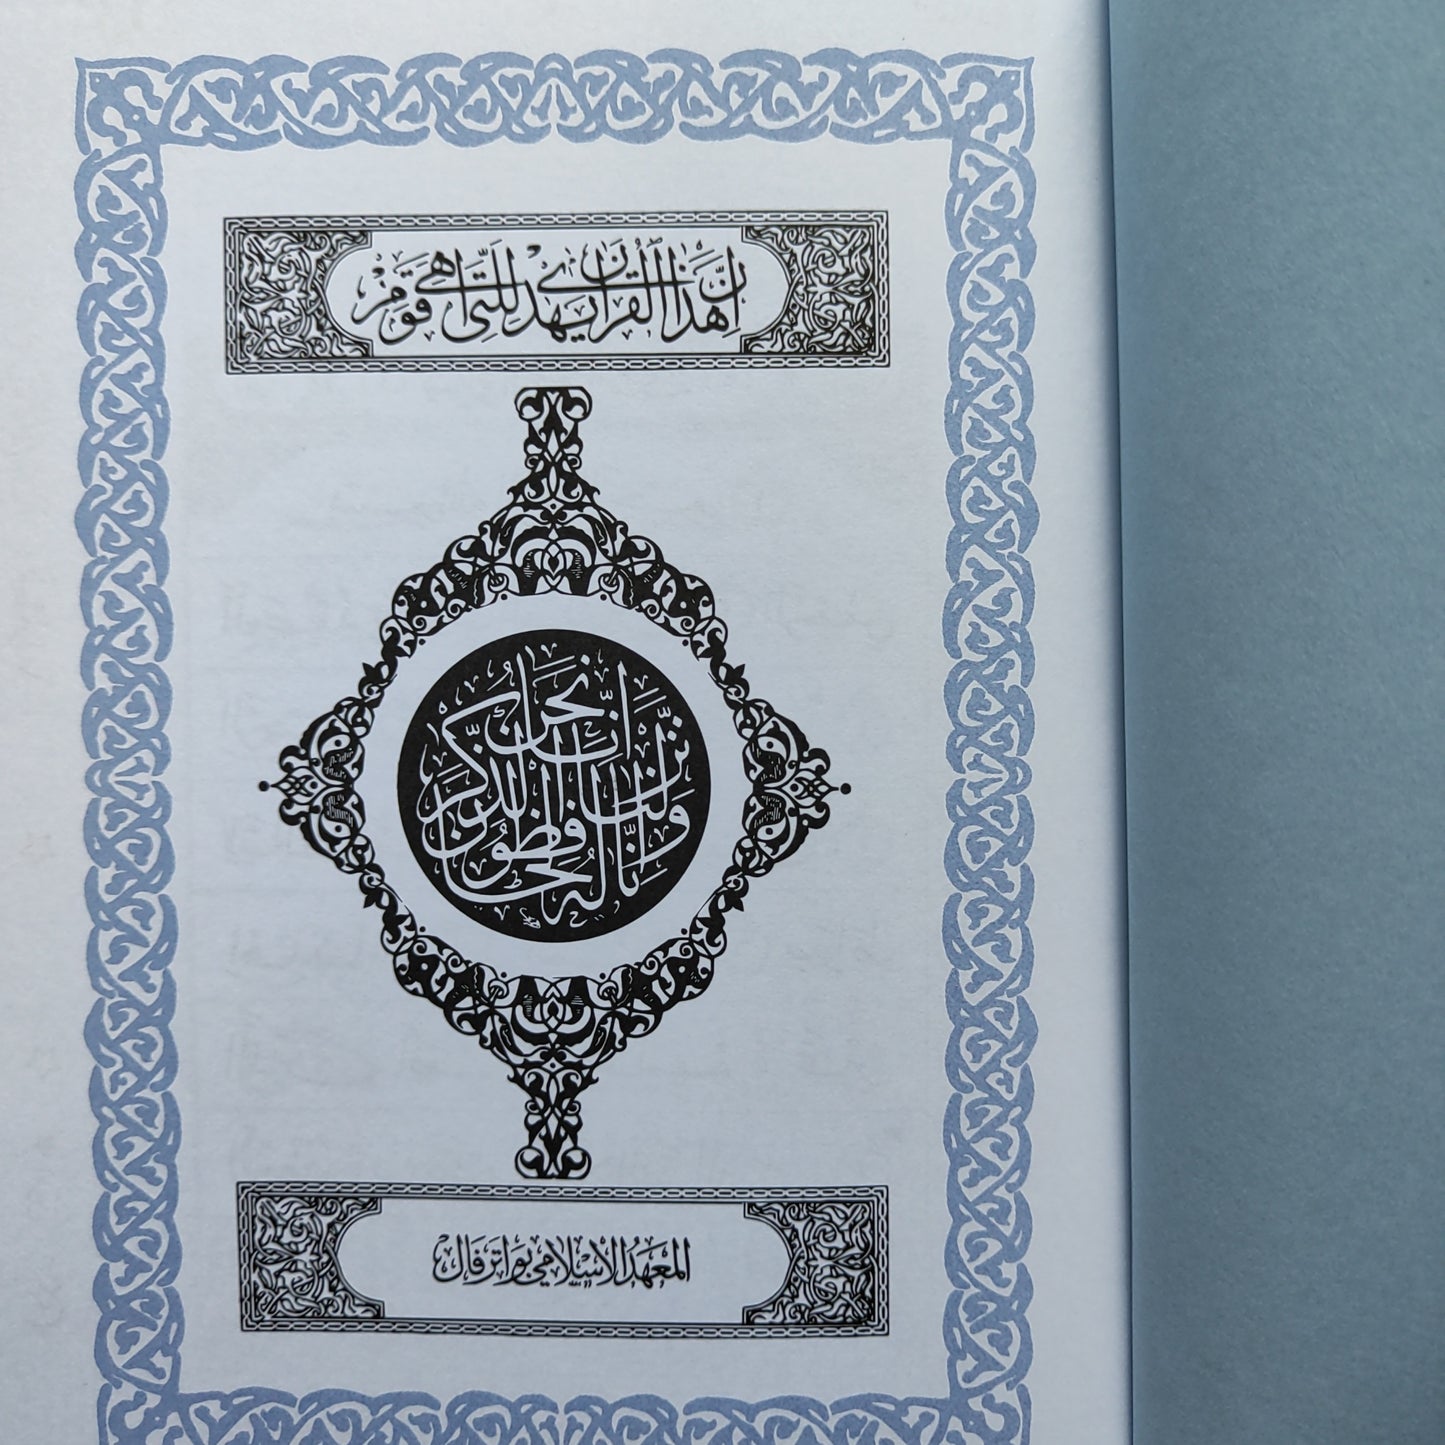 إِنَّ هَذَا الْقُرْآنَ يَهْدِي لِلَّتِي هِيَ أَقْوَمُ
إِنَّا نَحْنُ نَزَّلْنَا الذِّكْرَ وَإِنَّا لَهُ لَحَافِظُونَ
المعهد الإسلامي بواترفال